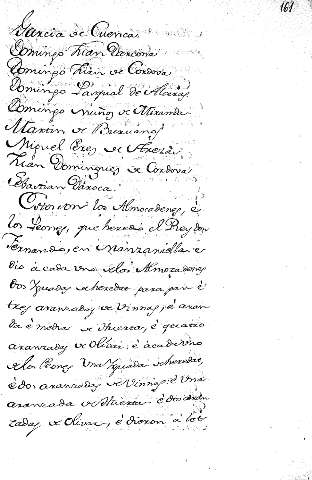 161
Garcia de Cuenca
Domingo Juan Darcona
Domingo Juan de Cordova
Domingo Pasqual de Alcaráz
Domingo Muñoz de Miranda
Martin de Burueno
Miguel Peres de Areza
Juan Domingues de Cordova
Sebastian Daroca
Estos son los Almocadenes, é
los Peones, que heredó el Rey don
Fernando, en Manzaniella é
dio á cada uno de los Almocadenes
dos Yugadas de heredat para pan é
tres aranzadas de Vinnas, é aran
da é media de Huerta, é quatro
aranzadas de Olivar, é á cada uno
de los Peones una Yugada de heredat,
é dos aranzadas de Vinnas é una
aranzada de Huerta é dos aran
zadas de Olivar, é dieron á los